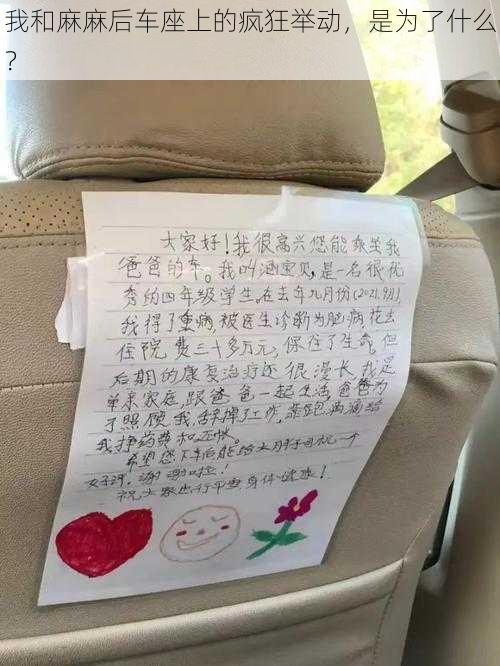 我和麻麻后车座上的疯狂举动，是为了什么
？
大家好！我很高兴您能乘坐我
爸爸的车。我叫涵宝贝，是一名很优
秀的四年级学生，在去年九月份(2021.9月)，
我得了重病被医生诊断为脑病花去
住院费三十多万元，保住了生命，但
后期的康复治疗还很漫长，我是
单亲家庭跟爸爸一起生活，爸爸为
了照顾我，辞掉了工作，靠跑滴滴给
我挣药费和还帐。
希望您下车后能给
好评，谢谢啦！
祝大家出行平安身体健康！